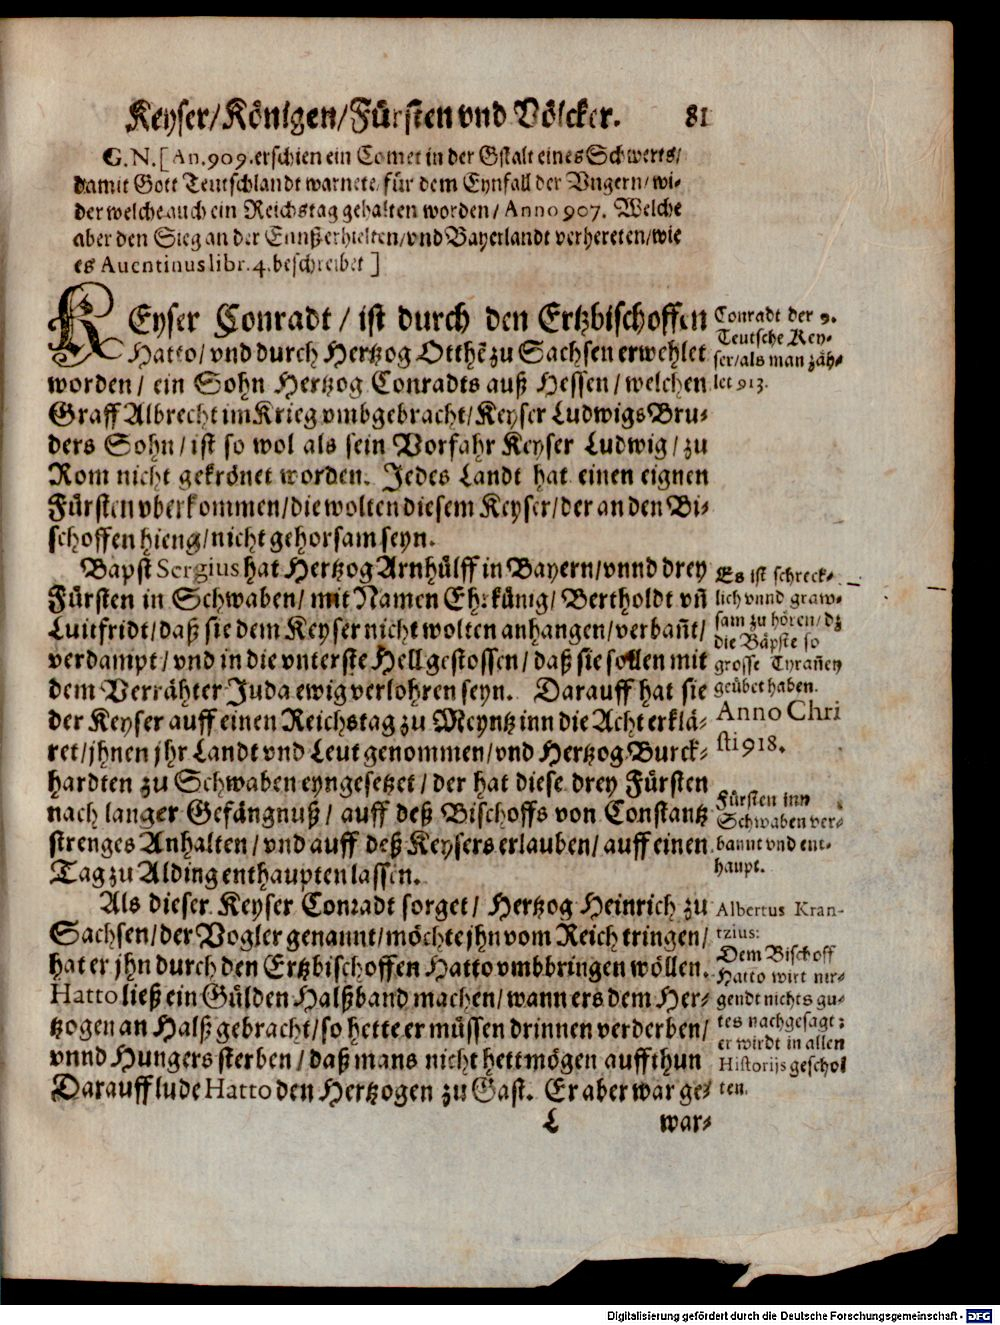 Keyser/Königen/Fürsten vnd Völcker. 81
G.N. [An. 909. erschien ein Comet in der Gstalt eines Schwerts/
damit Gott Teutschlandt warnete für dem Eynfall der Vngern/wi-
der welche auch ein Reichstag gehalten worden/ Anno 907. Welche
aber den Sieg an der Ennß erhielten/vnd Bayerlandt verhereten/wie
es Auentinus libr. 4. beschreibet ]
KEyser Conradt / ist durch den Ertzbischoffen
Hatto/ vnd durch Hertzog Otthē zu Sachsen erwehlet
worden/ ein Sohn Hertzog Conradts auß Hessen/ welchen
Graff Albrecht im Krieg vmbgebracht/Keyser Ludwigs Bru-
ders Sohn/ ist so wol als sein Vorfahr Keyser Ludwig/ zu
Rom nicht gekrönet worden. Jedes Landt hat einen eignen
Fürsten vberkommen/die wolten diesem Keyser/der an den Bi-
schoffen hieng/nicht gehorsam seyn.
Conradt der 9.
Teutsche Key-
ser/als man zäh-
let 913.
Bapst Sergius hat Hertzog Arnhülff in Bayern/vnnd drey
Fürsten in Schwaben/ mit Namen Ehrkünig/ Bertholdt vñ
Luitfridt/daß sie dem Keyser nicht wolten anhangen/verbañt/
verdampt/ vnd in die vnterste Hell gestossen/ daß sie sollen mit
dem Verrähter Juda ewig verlohren seyn. Darauff hat sie
der Keyser auff einen Reichstag zu Meyntz inn die Acht erklä-
ret/jhnen jhr Landt vnd Leut genommen/vnd Hertzog Burck-
hardten zu Schwaben eyngesetzet / der hat diese drey Fürsten
nach langer Gefängnuß/ auff deß Bischoffs von Constantz
strenges Anhalten/vnd auff deß Keysers erlauben/ auff einen
Tag zu Alding enthaupten lassen.
Es ist schreck-
lich vnnd graw-
sam zu hören/dz
die Bäpste so
grosse Tyrañey
geübet haben.
Anno Chri
sti 918.
Fürsten inn
Schwaben ver-
bannt vnd ent-
haupt.
Als dieser Keyser Conradt sorget/ Hertzog Heinrich zu
Sachsen/der Vogler genannt/möchte jhn vom Reich tringen/
hat er jhn durch den Ertzbischoffen Hatto vmbbringen wöllen.
Hatto ließ ein Gülden Halßband machen/wann ers dem Her-
tzogen an Halß gebracht/so hette er müssen drinnen verderben/
vnnd Hungers sterben/ daß mans nicht hett mögen auffthun
Darauff lude Hatto den Hertzogen zu Gast. Er aber war ge-
Albertus Kran-
tzius:
Dem Bischoff
Hatto wirt nir-
gendt nichts gu-
tes nachgesagt:
er wirdt in allen
Historijs geschol
ten.
L war-
Digitalisierung gefördert durch die Deutsche Forschungsgemeinschaft - DFG